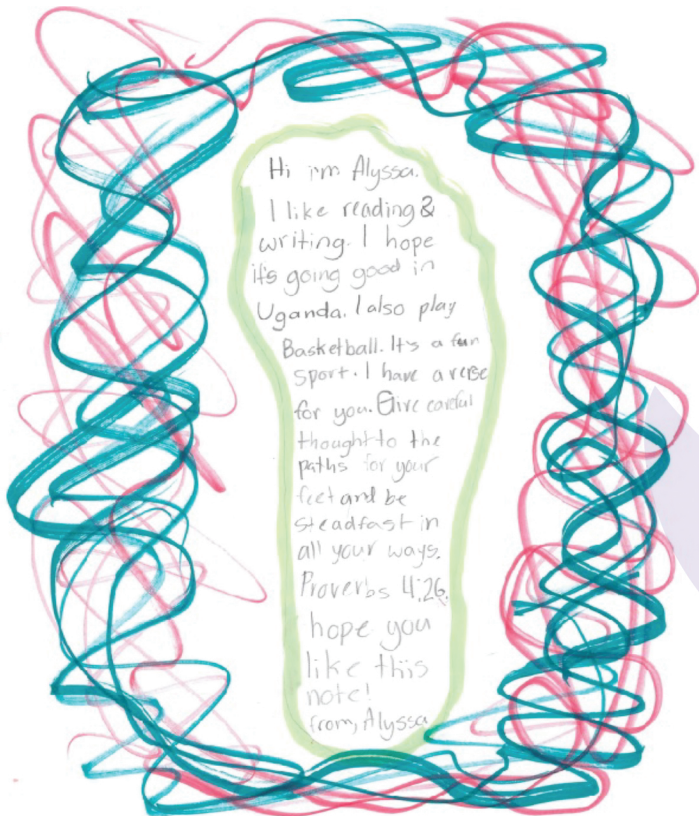 Hi i'm Alyssa.
I like reading &
writing. I hope
it's going good in
Uganda. I also play
Basketball. It's a fun
sport. I have a verse
for you. Give careful
thought to the
paths for your
feet and be
steadfast in
all your ways.
Proverbs 4:26.
hope you
like this
note!
from, Alyssa